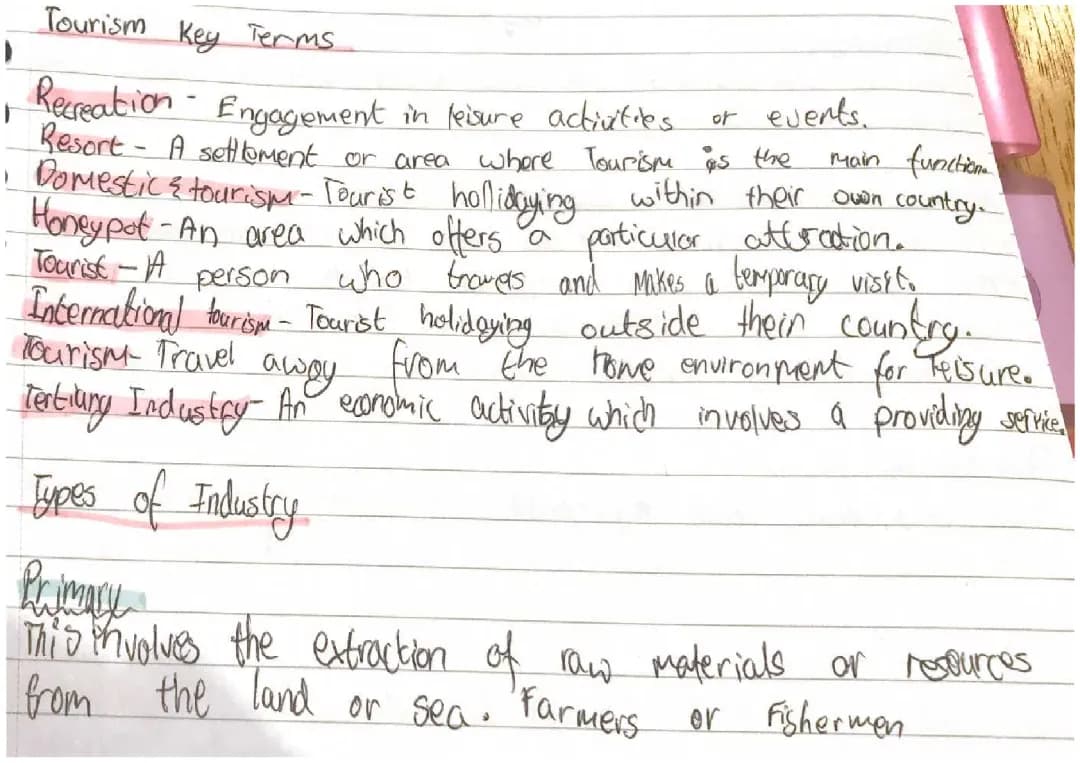 Tourism Key Terms
Recreation - Engagement in leisure activities or events.
Resort - A settlement or area where Tourism is the main function.
Domestic & tourism - Tourist hollidaying within their own country.
Honeypot - An area which offers a particular attraction.
Tourist - A person who travels and makes a temporary visit.
International tourism - Tourist holidaying outside their country.
Tourism - Travel away from the home environment for leisure.
Tertiary Industry - An economic activity which involves a providing service.
Types of Industry
Primary
This involves the extraction of raw materials or resources
from the land or sea. Farmers or Fishermen